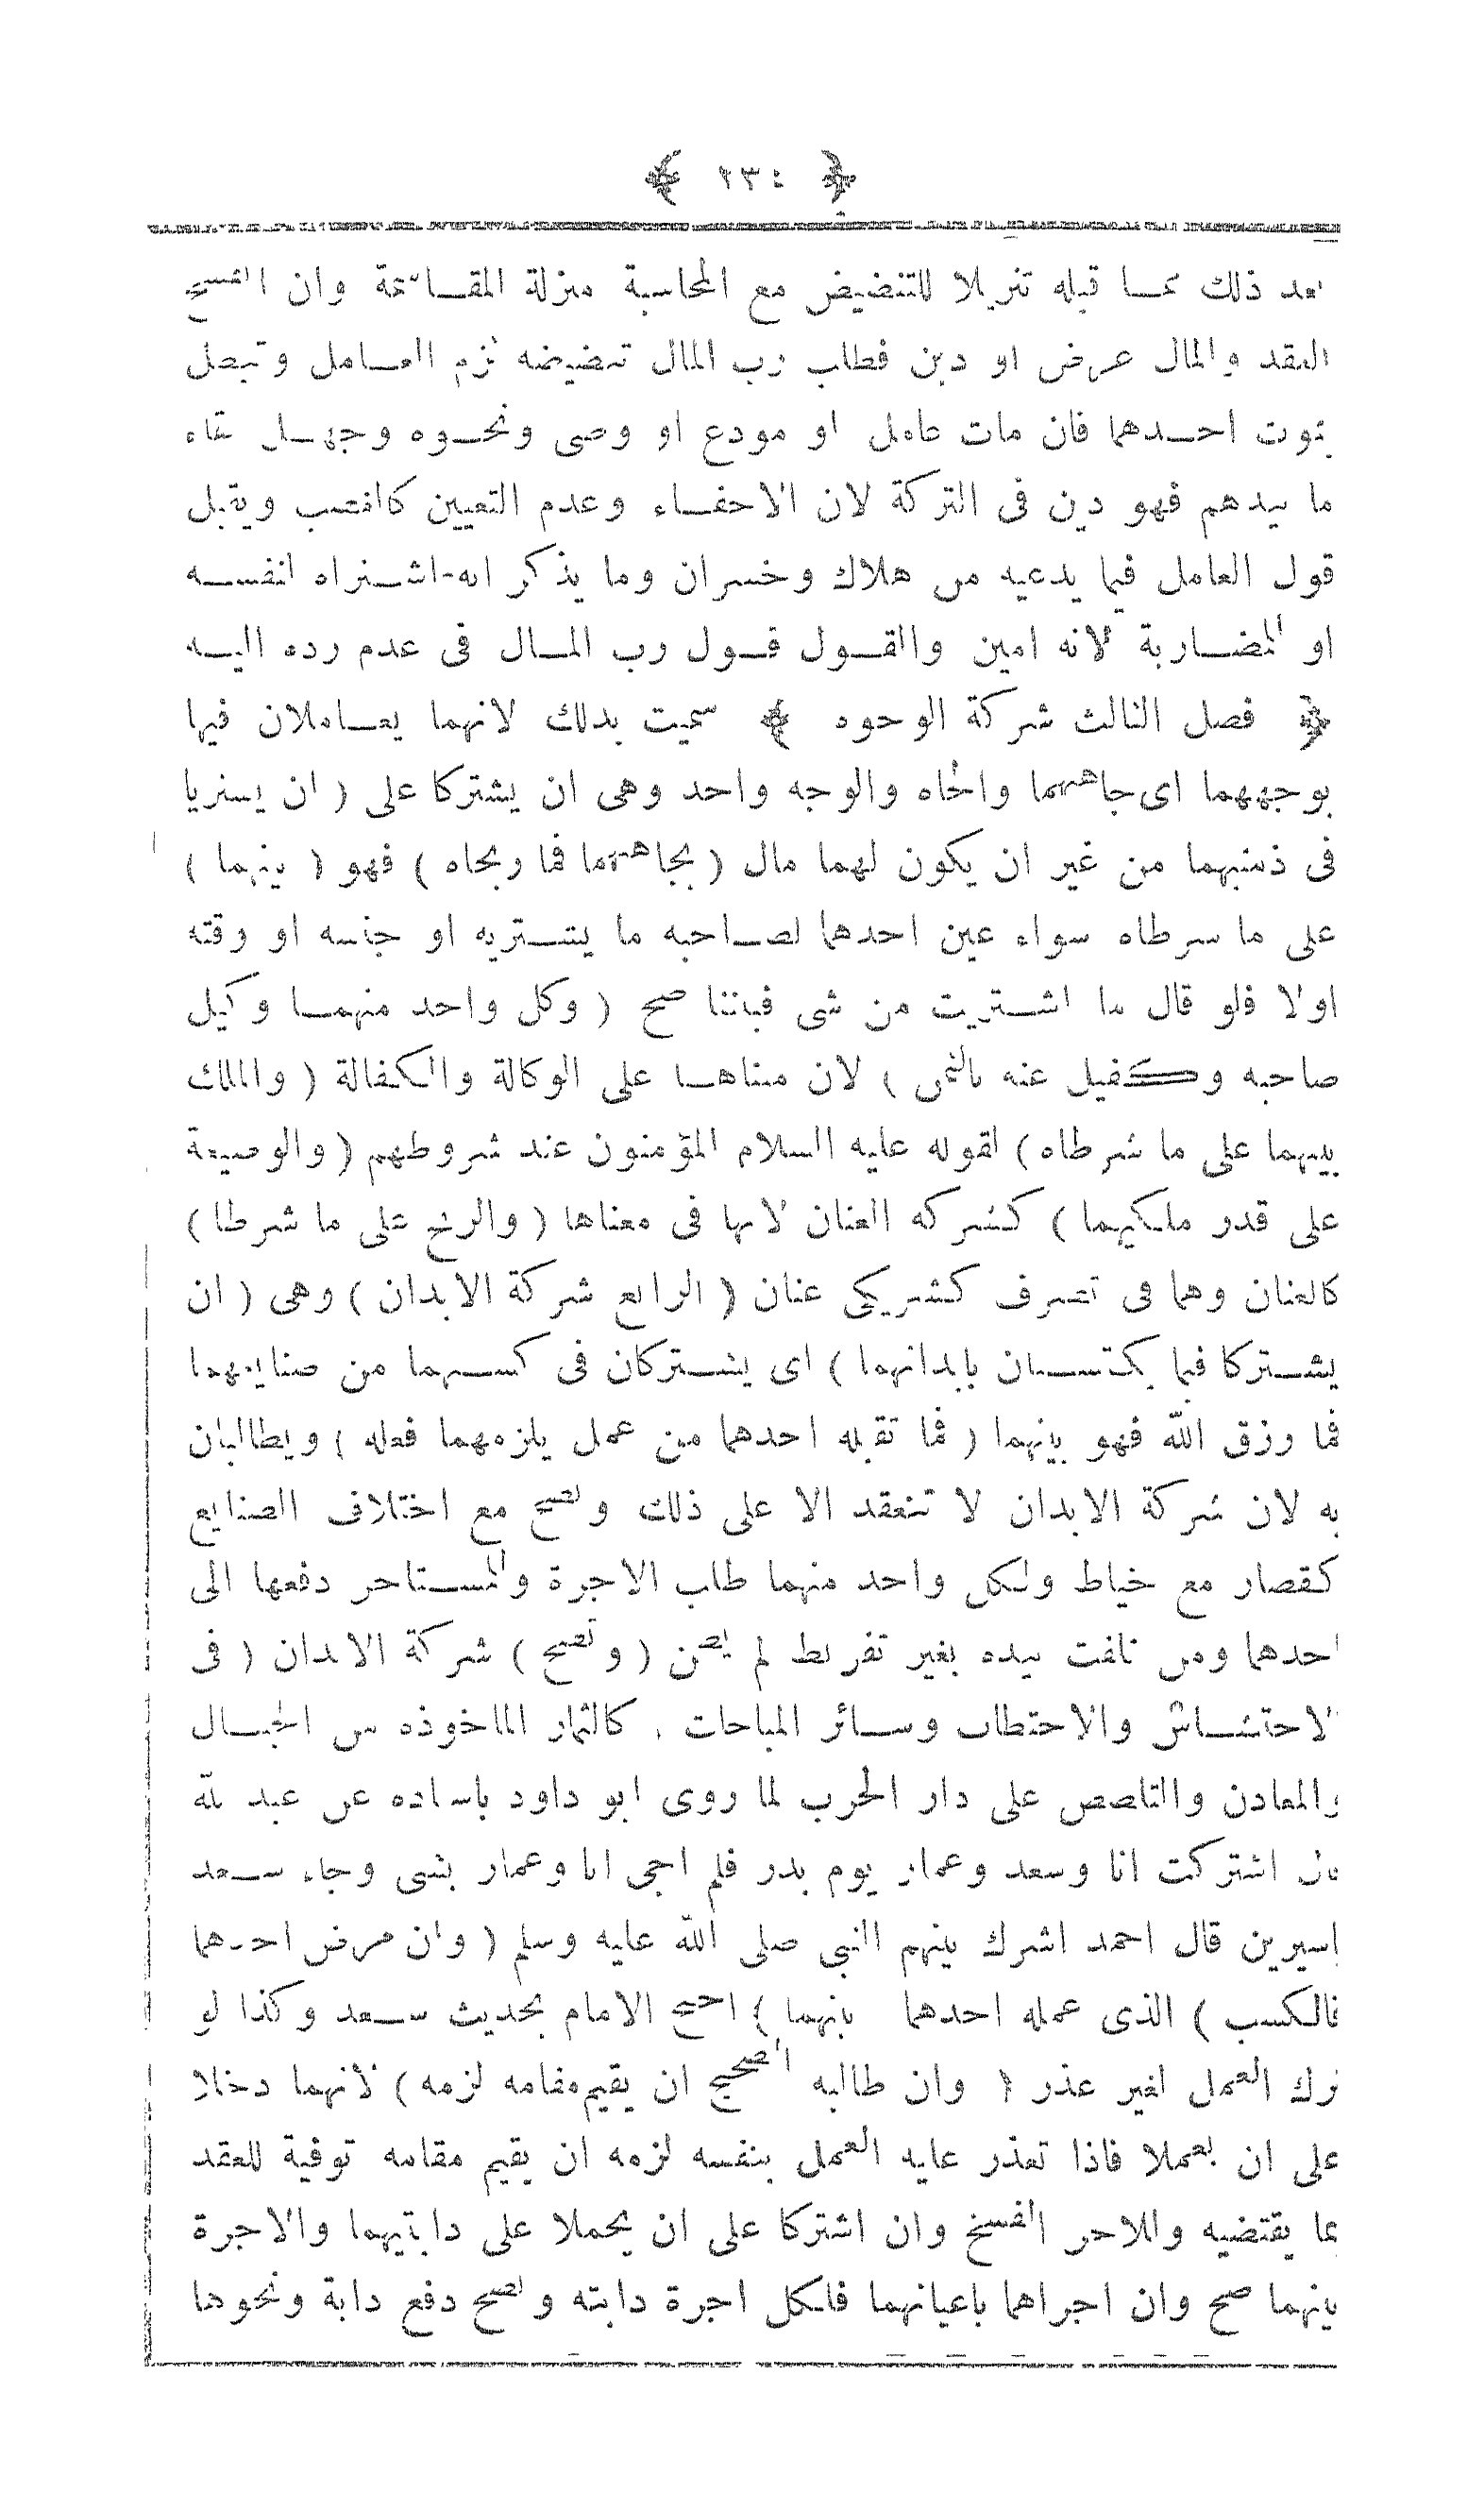 ﴿ ٢٣٠ ﴾
بعد ذلك مما قبله تنزيلا للتنضيض مع المحاسبة منزلة المقاسمة وان انفسخ
العقد والمال عرض او دين فطلب رب المال تنضيضه لزم العامل وتبطل
بموت احدهما فان مات عامل او مودع او وصى ونحوه وجهل بقاء
ما بيدهم فهو دين فى التركة لان الاخفاء وعدم التعيين كالغصب ويقبل
قول العامل فيما يدعيه من هلاك وخسران وما يذكر انه اشتراه لنفسه
او للمضاربة لانه امين والقول قول رب المال فى عدم رده اليه
﴿ فصل الثالث شركة الوجوه ﴾ سميت بذلك لانهما يعاملان فيها
بوجههما اى جاههما والجاه والوجه واحد وهى ان يشتركا على ( ان يشتريا
فى ذمتيهما من غير ان يكون لهما مال ( بجاههما فما ربحاه ) فهو ( بينهما )
على ما شرطاه سواء عين احدهما لصاحبه ما يشتريه او جنسه او وقته
اولا فلو قال ما اشتريت من شى فبيننا صح ( وكل واحد منهما وكيل
صاحبه وكفيل عنه بالثمن ) لان مبناها على الوكالة والكفالة ( والملك
بينهما على ما شرطاه ) لقوله عليه السلام المؤمنون عند شروطهم ( والوضيعة
على قدر ملكيهما ) كشركة العنان لانها فى معناها ( والربح على ما شرطا )
كالعنان وهما فى تصرف كشريكى عنان ( الرابع شركة الابدان ) وهى ( ان
يشتركا فيما يكتسبان بابدانهما ) اى يشتركان فى كسبهما من صنايعهما
فما رزق الله فهو بينهما ( فما تقبله احدهما من عمل يلزمهما فعله ) ويطالبان
به لان شركة الابدان لا تنعقد الا على ذلك وتصح مع اختلاف الصنايع
كقصار مع خياط ولكل واحد منهما طلب الاجرة وللمستاجر دفعها الى
احدهما ومن تلفت بيده بغير تفريط لم يضمن ( وتصح ) شركة الابدان ( فى
الاحتشاش والاحتطاب وسائر المباحات ) كالثمار الماخوذه من الجبال
والمعادن والتلصص على دار الحرب لما روى ابو داود باسناده عن عبد الله
قال اشتركت انا وسعد وعمار يوم بدر فلم اجى انا وعمار بشى وجاء سعد
باسيرين قال احمد اشرك بينهم النبى صلى الله عليه وسلم ( وان مرض احدهما
فالكسب ) الذى عمله احدهما بينهما ) احتج الامام بحديث سعد وكذا لو
ترك العمل لغير عذر ( وان طالبه الصحيح ان يقيم مقامه لزمه ) لانهما دخلا
على ان يعملا فاذا تعذر عليه العمل بنفسه لزمه ان يقيم مقامه توفية للعقد
بما يقتضيه وللاخر الفسخ وان اشتركا على ان يحملا على دابتيهما والاجرة
بينهما صح وان اجراهما باعيانهما فلكل اجرة دابته وتصح دفع دابة ونحوها